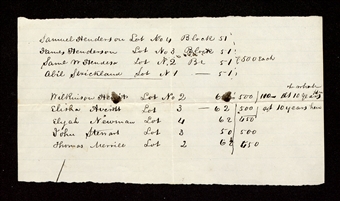 Samuel Henderson Lot No 4 Block 51
James Henderson Lot No 3 Block 51
Saml W. Henderson Lot N. 2 Bk 51 $500 each
Abil Strickland Lot N 1 — 51
Wilkinson Lot No 2 — 62 500 at 10 years
Elisha Averitt Lot 3 — 62 500 at 10 years
Elijah Newman Lot 4 62 450
John Stewart Lot 3 50 500
Thomas Merrice Lot 2 62 450